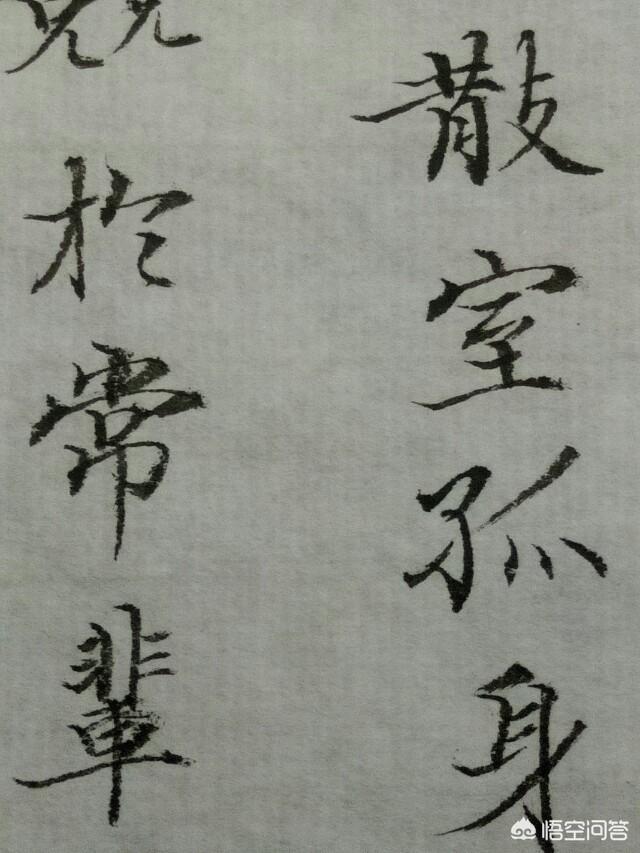 散室孤身
於常輩
悟空问答